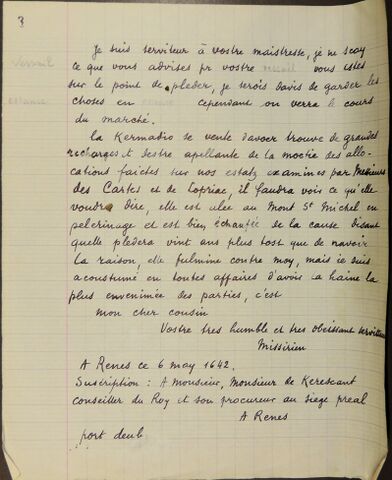 3
Je suis serviteur à vostre maistresse, je ne scay
ce que vous advises pr vostre vous istes
sur le point de pleder, je serois davis de garder les
choses en cependant on verra le cours
du marché.
La Kermadio se vente davoer trouve de grandes
recharges et destre apellante de la moctie des allo-
cations faictes sur nos estatz examines par Messieurs
des Cartes et de Lopriac, il faudra voir ce qu'elle
voudra dire, elle est alee au Mont St Michel en
pelerinage et est bien échaufée de la cause disant
quelle pledera vint ans plus tost que de navoir
la raison, elle fulmine contre moy, mais ie suis
acoustumé en toutes affaires d'avois la haine la
plus envenimée des parties, c'est
mon cher cousin
Vostre tres humble et tres obeissant serviteur
Missirien
A Renes ce 6 may 1642.
Suscription : A monsieur, Monsieur de Kerescant
conseiller du Roy et son procureur au siege preal
A Renes
port deub